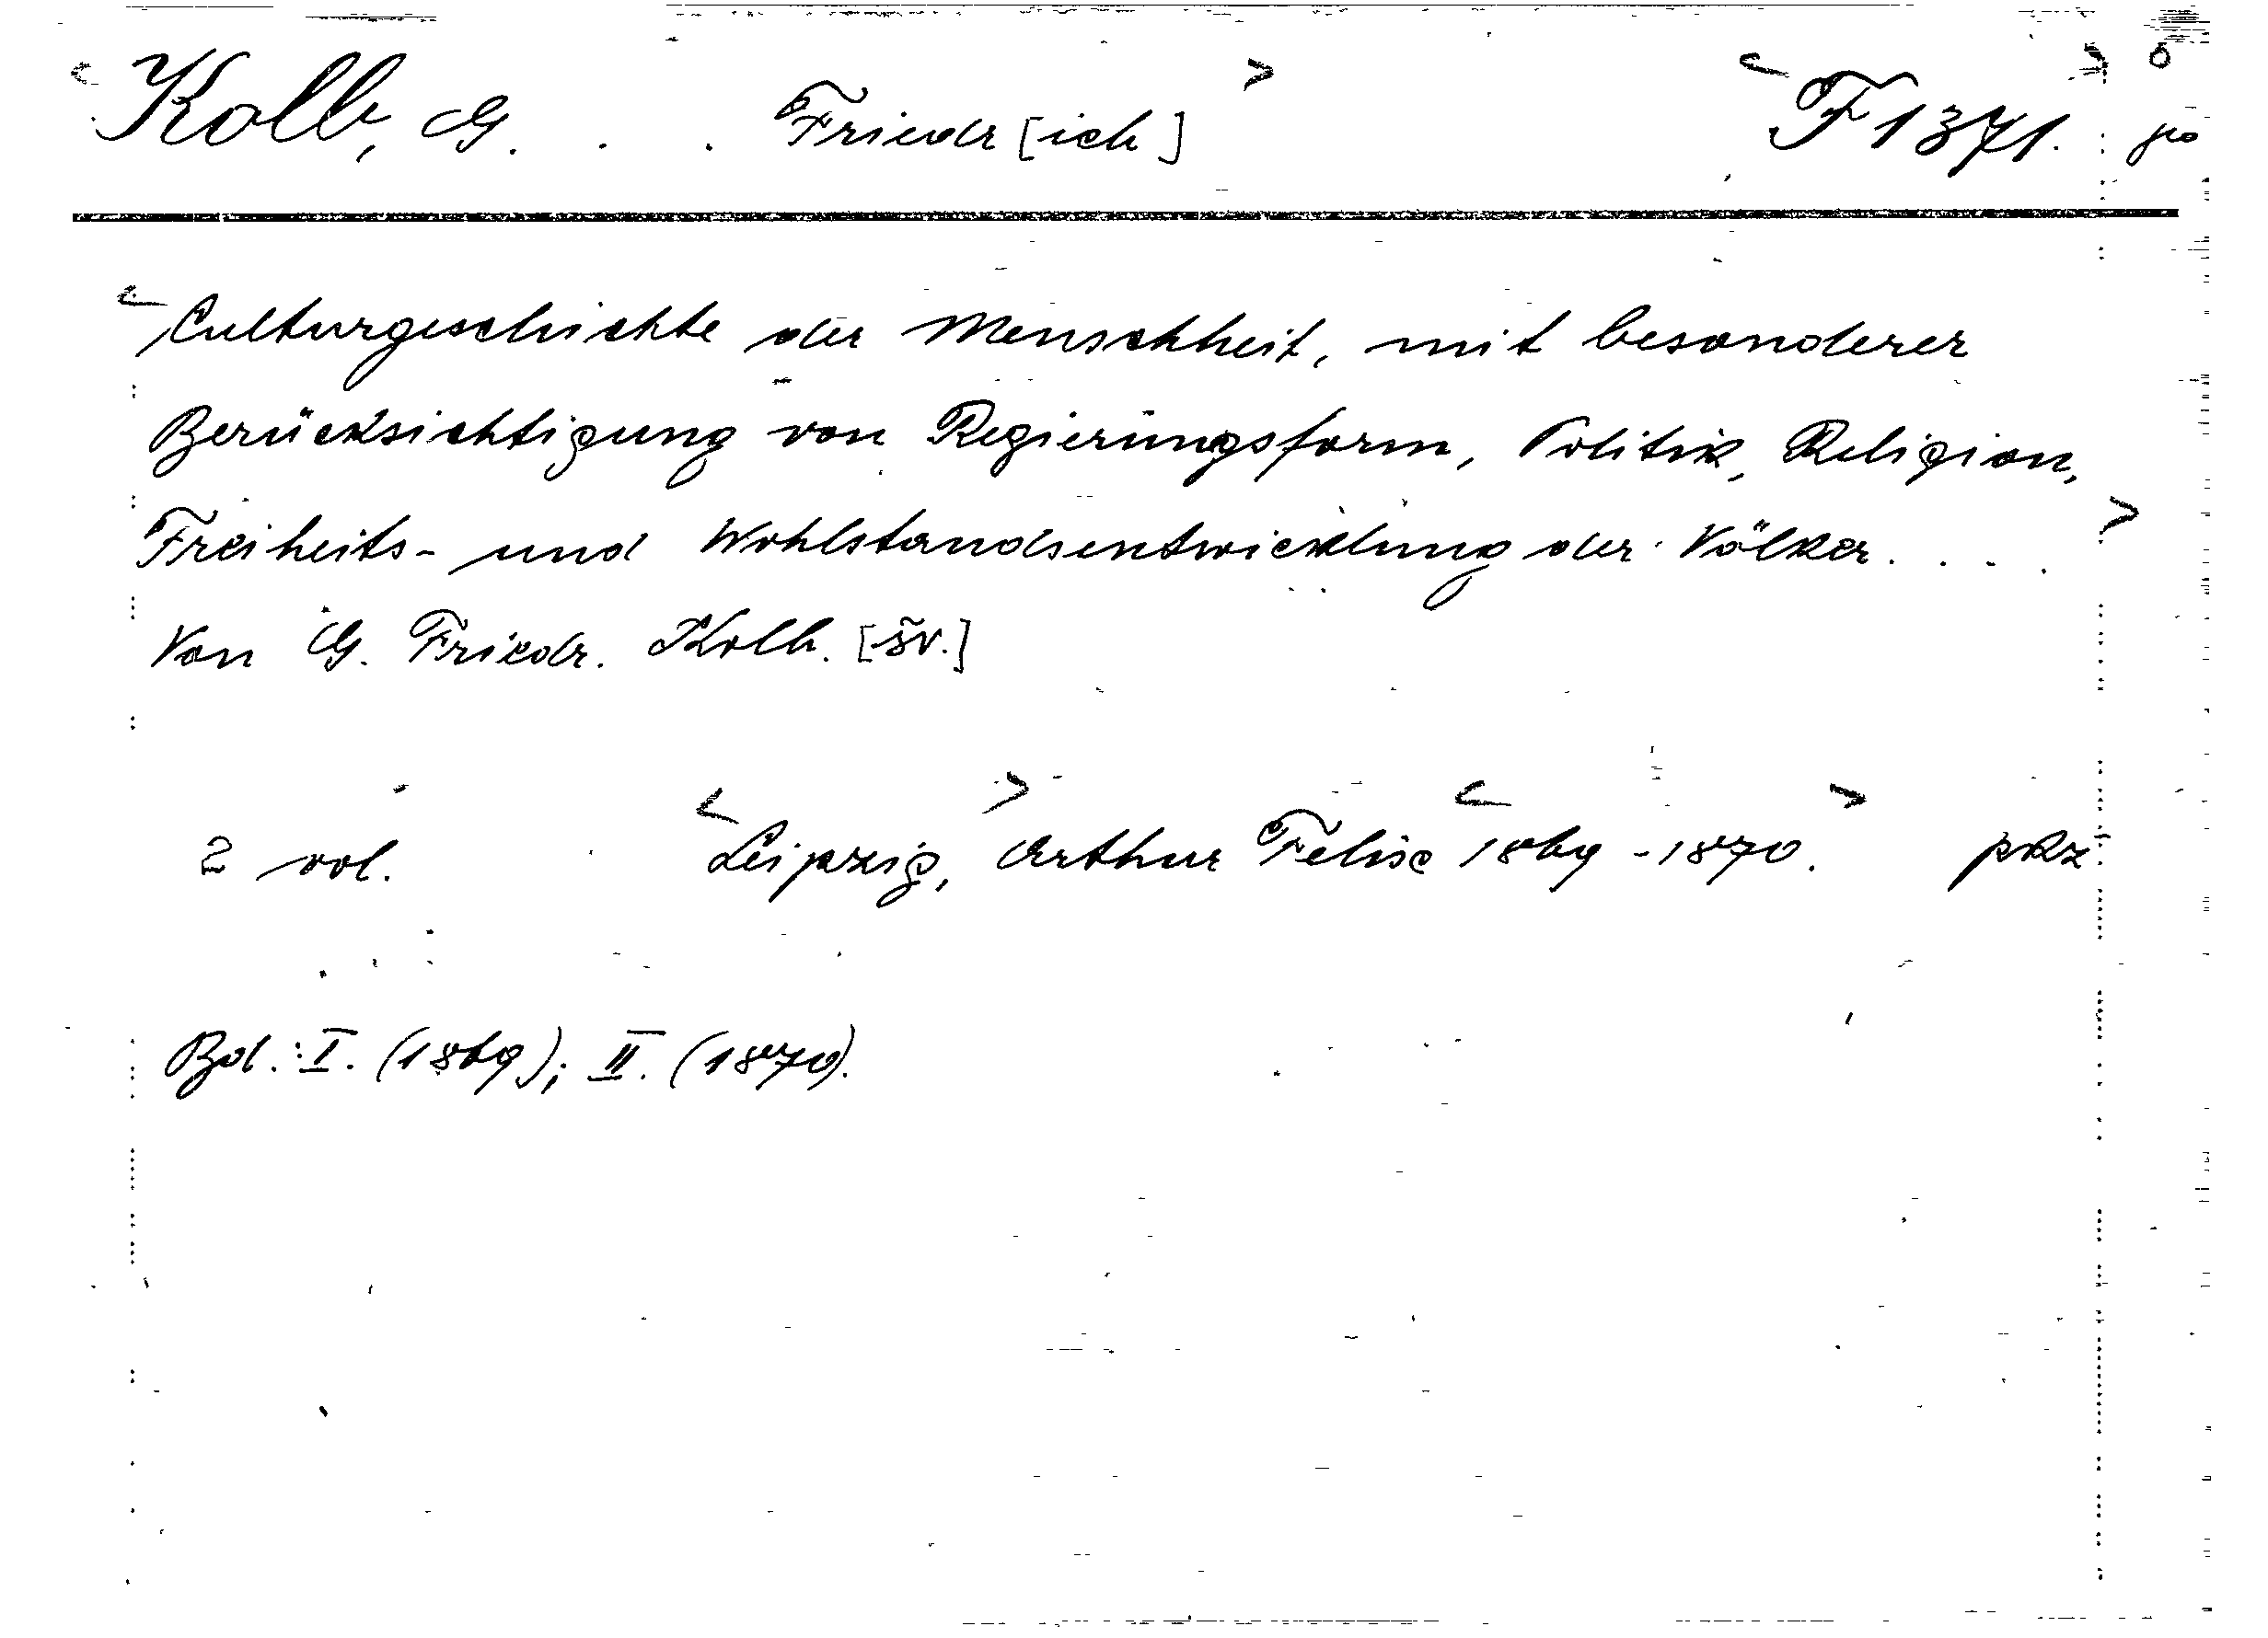 <Kolb, G. . . Friedr[ich]> <F 1371.>
<Culturgeschichte der Menschheit, mit besonderer
Berücksichtigung von Regierungsform, Politik, Religion,
Freiheits- und Wohlstandsentwicklung der Völker. . . .>
Von G. Friedr. Kolb. [šv.]
2 vol. <Leipzig,> Arthur Felix <1869-1870.> pkz
Bd.: I. (1869); II. (1870).